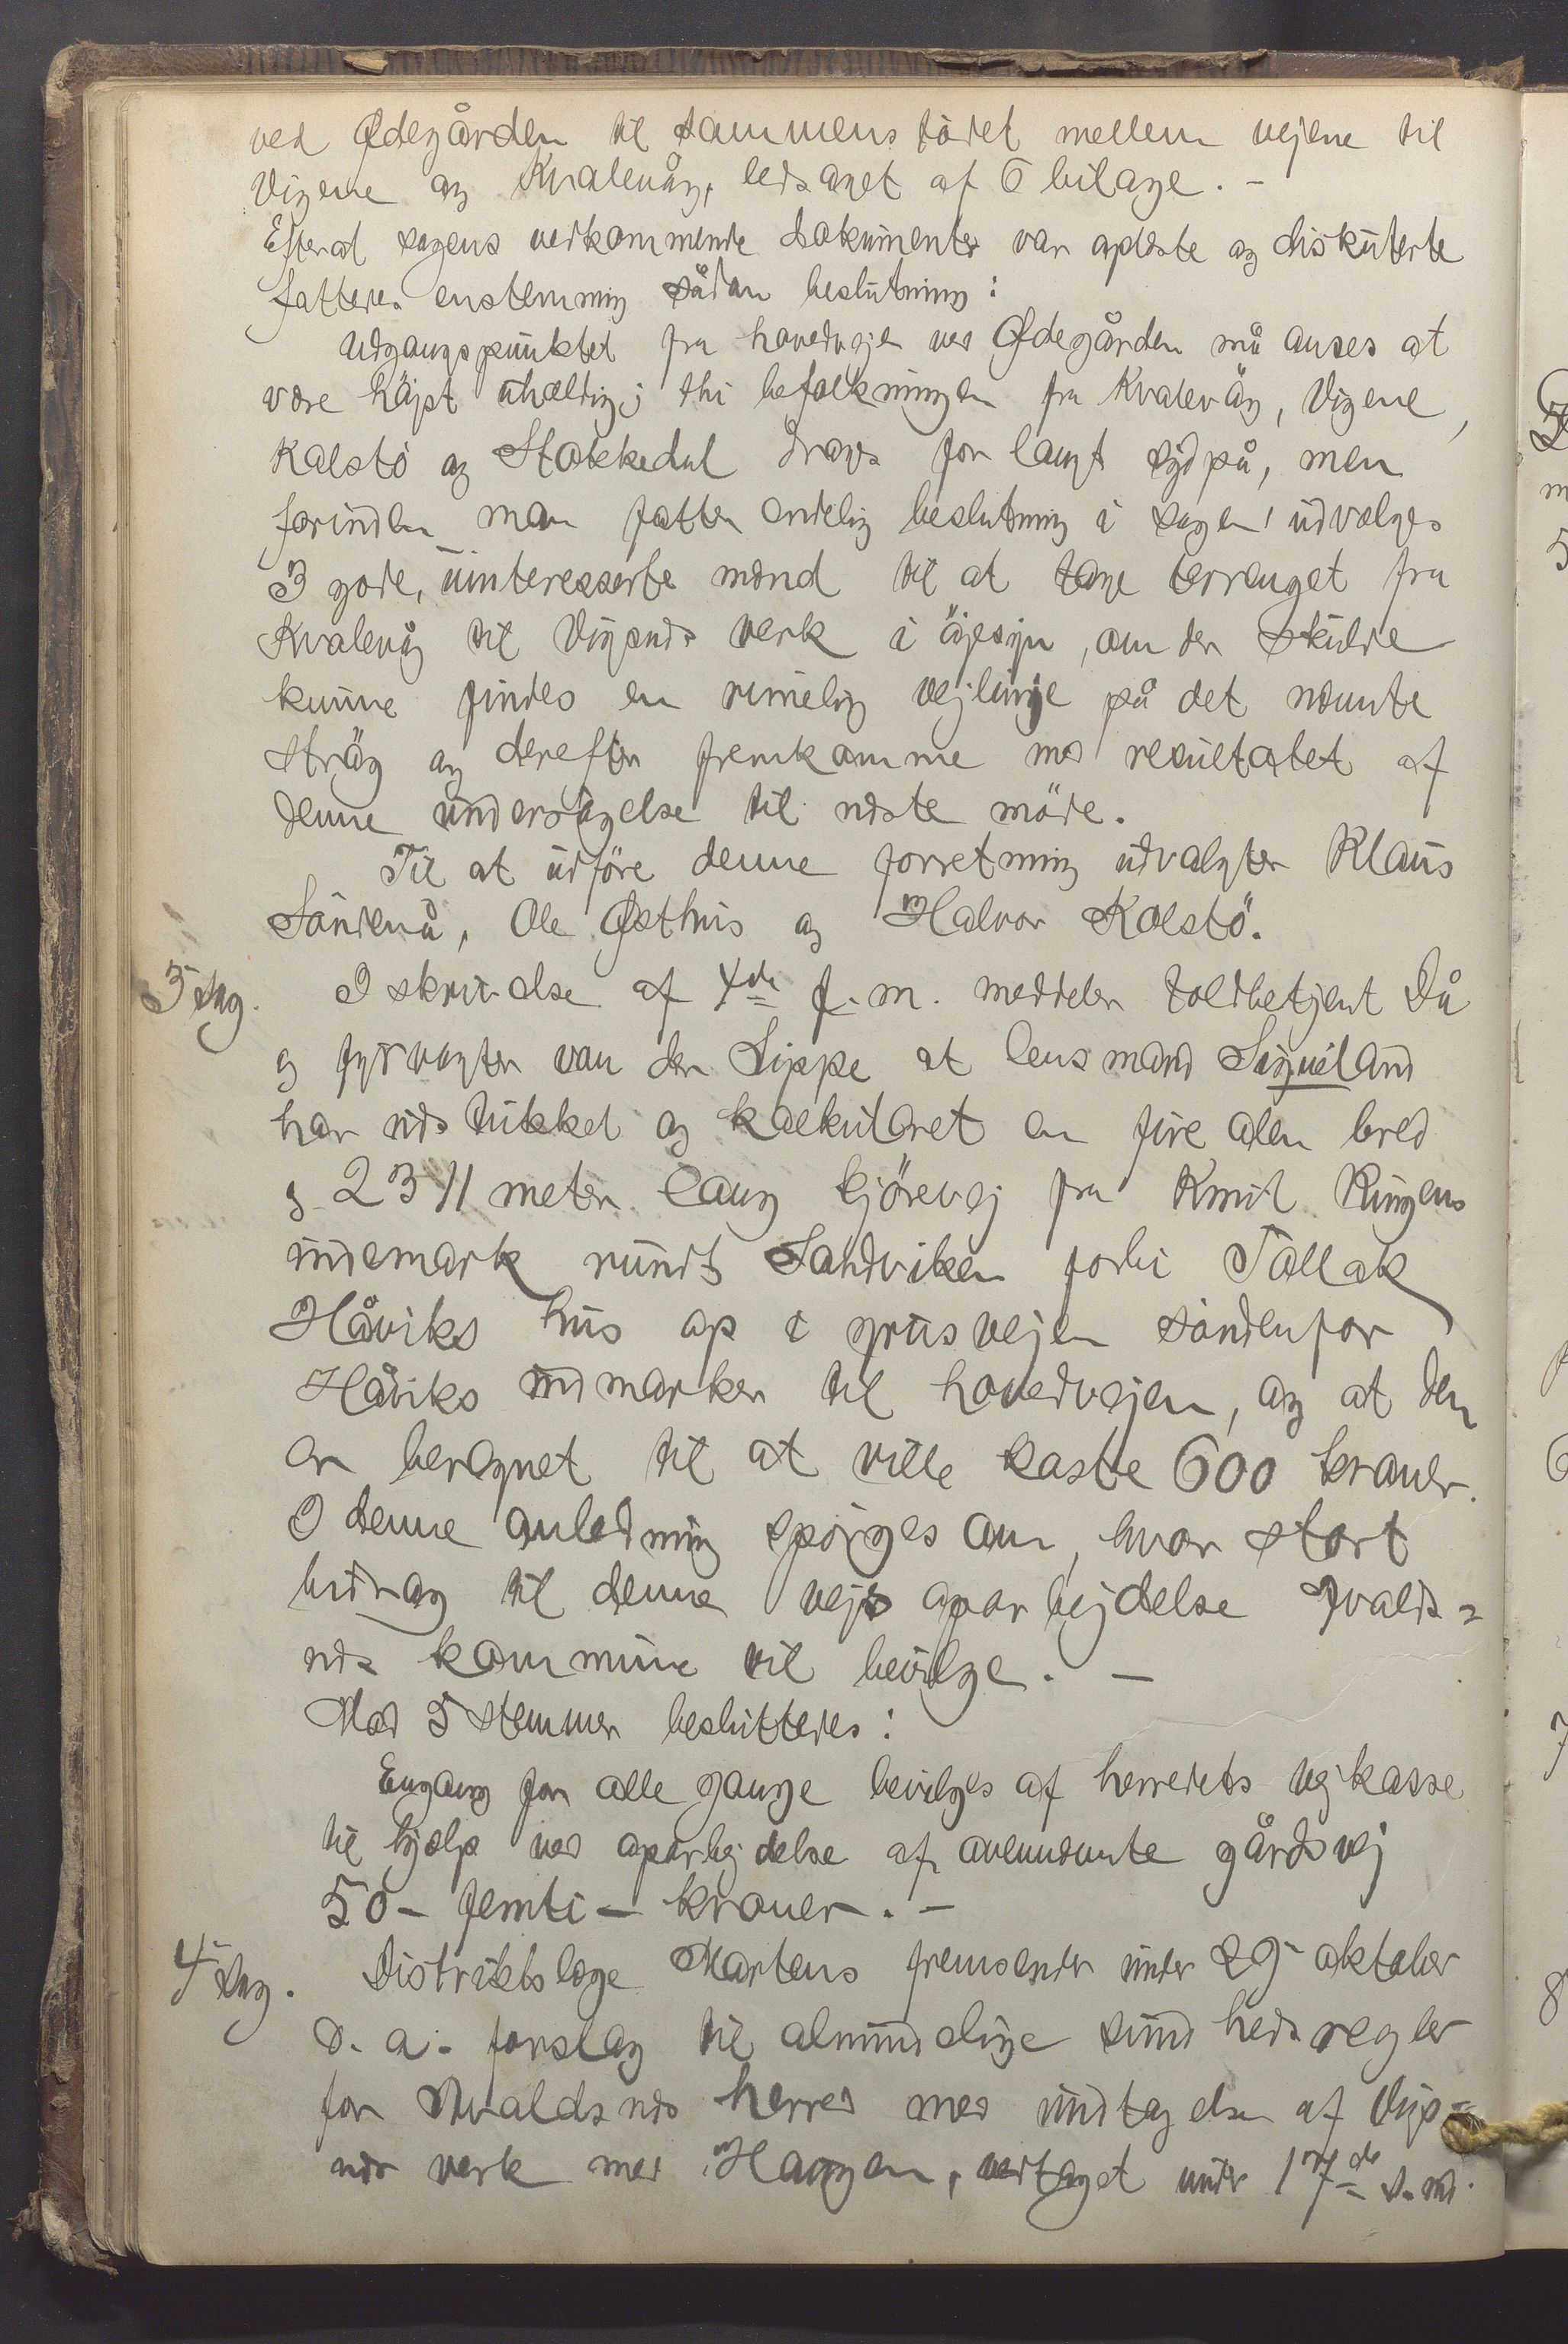 ved Ødegården til sammenstödet mellem vejene til
Vigene og Kvalevåg, ledsaget af 6 bilage. -
Efterat sagens vedkommende dokumenter var oplæste og diskuterte
fattedes enstemmig sådan beslutning:
Udgangspunktet fra hovedvejen ved Ødegården må anses at
være höjst uheldig; thi befolkningen fra Kvalevåg, Vigene,
Kalstö og Stokkedal drages for langt sydpå, men
forinden man fatter endelig beslutning i sagen, udvælges
3 gode, uinteresserte mænd til at tage terrænget fra
Kvalevåg til Vigsnæs verk i öjesyn, om der skulde
kunne findes en rimelig vejlinje på det nævnte
strög og derefter fremkomme med resultatet af
denne undersögelse til næste möde.
Til at udföre denne forretning udvalgtes Klaus
Söndenå, Ole Østhus og Halvor Kolstö.
3 sag. I skrivelse af 4de f. m. meddeler toldbetjent Då
og fyrvogter van der Lippe at lensmand Sigveland
har udstukket og kalkuleret en fire alen bred
og 2311 meter lang kjörevej fra Knut Ringens
indemark rundt Sandviken forbi Tallak
Håviks hus op i grusvejen söndenfor
Håviks indmarker til hovedvejen, og at den
er beregnet til at ville koste 600 kroner.
I denne anledning spörges om, hvor stort
bidrag til denne vejs oparbejdelse Avalds=
næs kommune vil bevilge. -
Mod 5 stemmer besluttedes:
Engang for alle gange bevilges af herredets vejkasse
til hjælp ved oparbejdelse af ovennævnte gårdsvej
50 - femti - kroner. -
4 sag. Distriktslæge Martens fremsender under 29 oktober
d. a. forslag til almindelige sundhedsregler
for Avaldsnæs herred med undtagelse af Vigs=
næs verk med Haugen, vedtaget under 17de s. md.